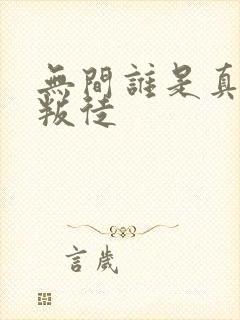 無間誰是真
叛徒
言歲